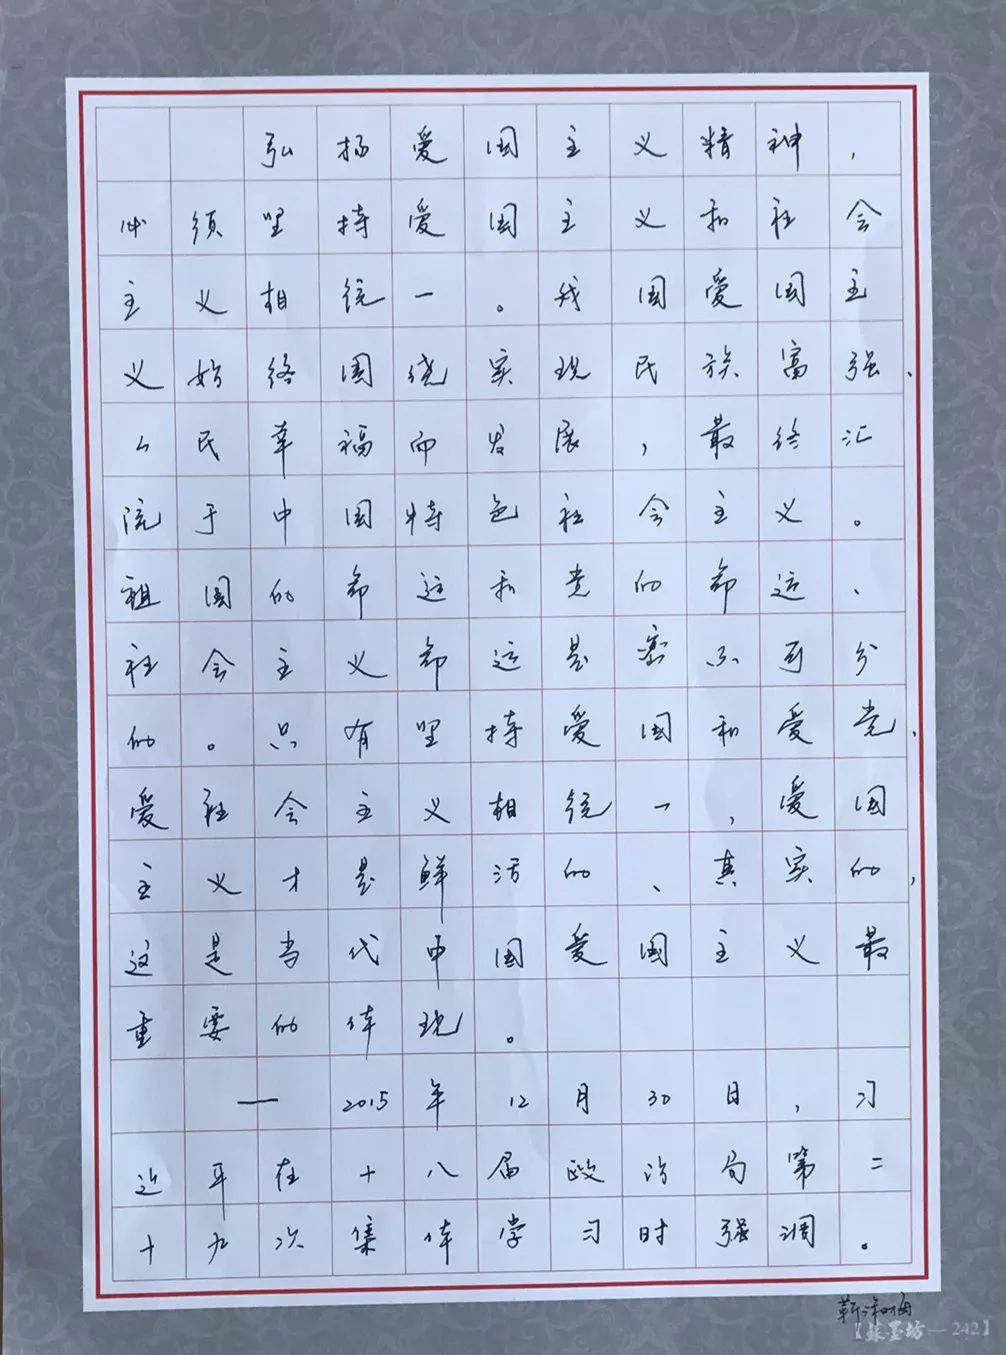 弘扬爱国主义精神，
必须坚持爱国主义和社会
主义相统一。我国爱国主
义始终围绕实现民族富强、
人民幸福而发展，最终汇
流于中国特色社会主义。
祖国的命运和党的命运、
社会主义命运是密不可分
的。只有坚持爱国和爱党、
爱社会主义相统一，爱国
主义才是鲜活的、真实的，
这是当代中国爱国主义最
重要的体现。
—2015年12月30日，习
近平在十八届政治局第二
十九次集体学习时强调。
【墨坊—242】